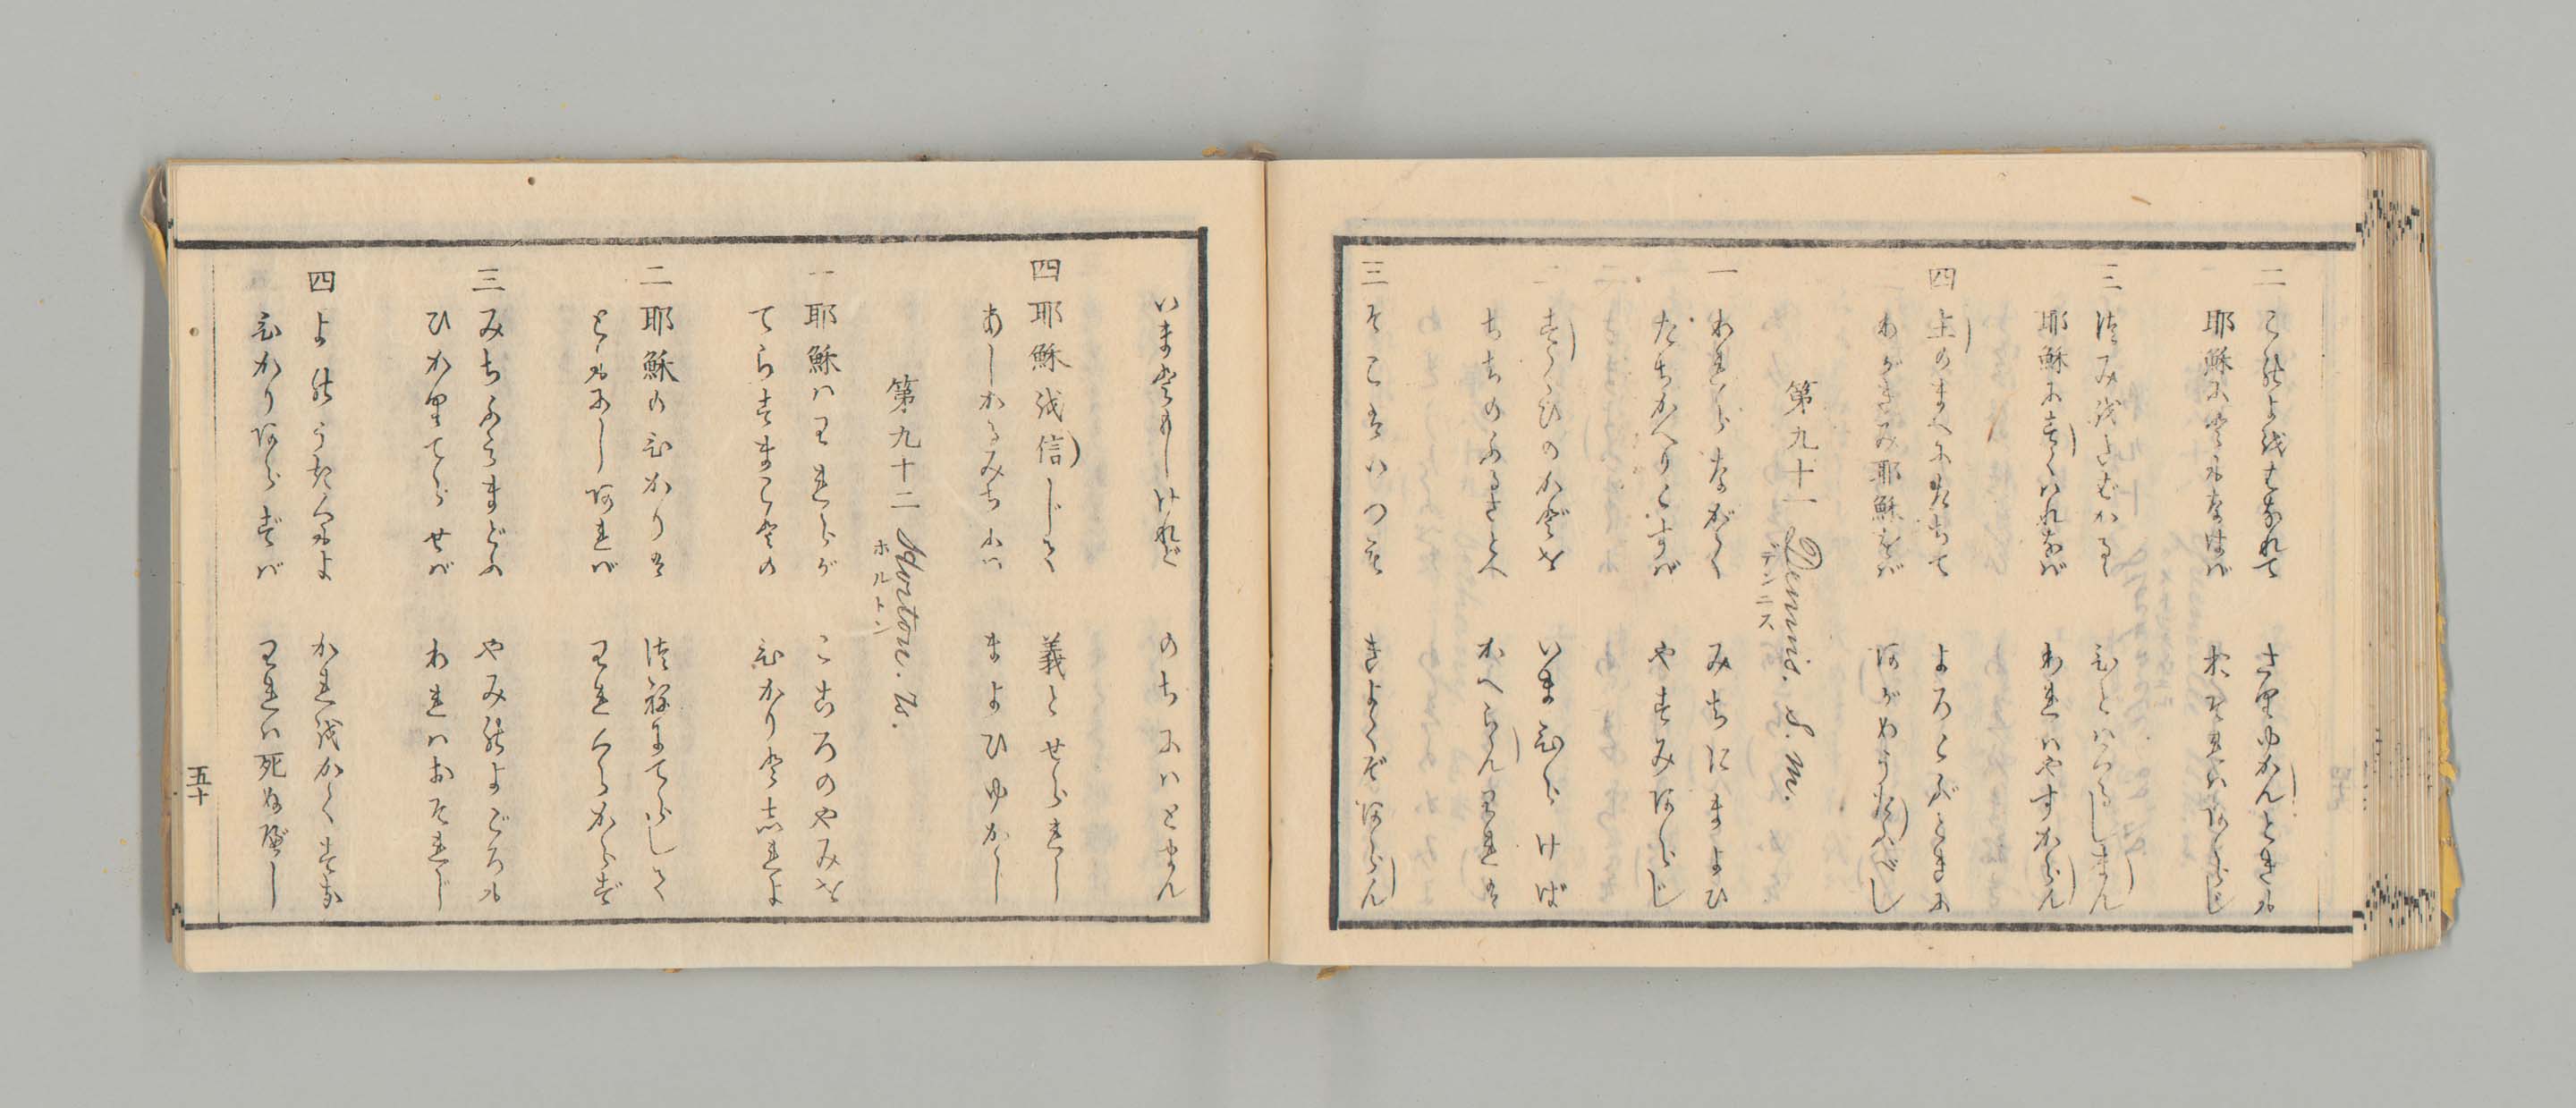 二 この世をはなれて さりゆかんときも
耶穌にともなはば おそれはあらじ
三 つみをさばかるる ひとはくるしまん
耶穌にすくはれなば われはやすからん
四 主のまへにたちて よろこぶときに
わがきみ耶穌をば ほめうたふべし
第九十一 Dennis. S. M.
デンニス
一 われらながく みちにまよひ
たちかへりこずば やすみあらじ
二 すくひのかどを いまひらけば
ちちのふるさとへ かへらんわれは
三 そこはいつも きよくぞあらん
いまともしけれど のちにはとまん
四 耶穌を信じて 義とせられし
あしかるみちには まよひゆかじ
第九十二 Horton. 7.
ホルトン
一 耶穌はわれらが こころのやみを
てらすまことの ひかりとしれよ
二 耶穌のひかりは つねにてらして
ともにしあれば われくらからず
三 みちふみまどふ やみのよごろも
ひかりてらせば われはおそれじ
四 よのうたくもよ かれをかくすな
ひかりあらずば われは死ぬべし
五十